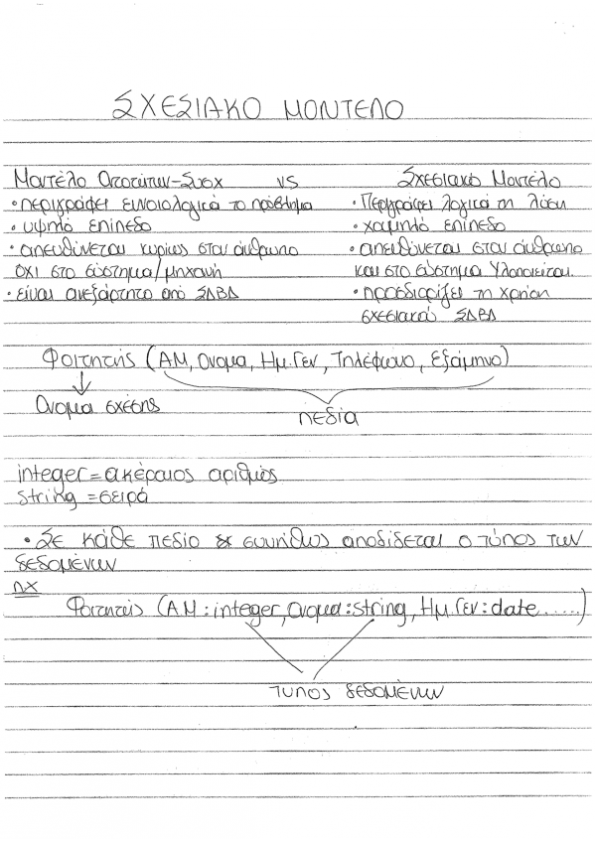 ΣΧΕΣΙΑΚΟ ΜΟΝΤΕΛΟ
Μοντέλο Οτοτήτων-Συσχ vs Σχεσιακό Μοντέλο
• περιγράφει εννοιολογικά το πρόβλημα • Περιγράφει λογικά τη λύση
• υψηλό επίπεδο • χαμηλό επίπεδο
• απευθύνεται κυρίως στον άνθρωπο • απευθύνεται στον άνθρωπο
όχι στο σύστημα/μηχανή και στο σύστημα Υλοποιείται
• είναι ανεξάρτητο από ΣΔΒΔ • προσδιορίζει τη χρήση
σχεσιακού ΣΔΒΔ
Φοιτητής (ΑΜ, Ονομα, Ημ.Γεν, Τηλέφωνο, Εξάμηνο)
Ονομα σχέσης πεδία
integer = ακέραιος αριθμός
string = σειρά
• Σε κάθε πεδίο συνήθως αποδίδεται ο τύπος των
δεδομένων
πχ
Φοιτητής (ΑΜ: integer, Ονομα: string, Ημ.Γεν: date......)
τύπος δεδομένων